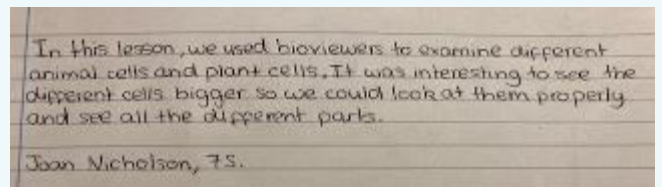 In this lesson, we used bioviewers to examine different
animal cells and plant cells. It was interesting to see the
different cells bigger so we could look at them properly
and see all the different parts.
Joan Nicholson, 7S.